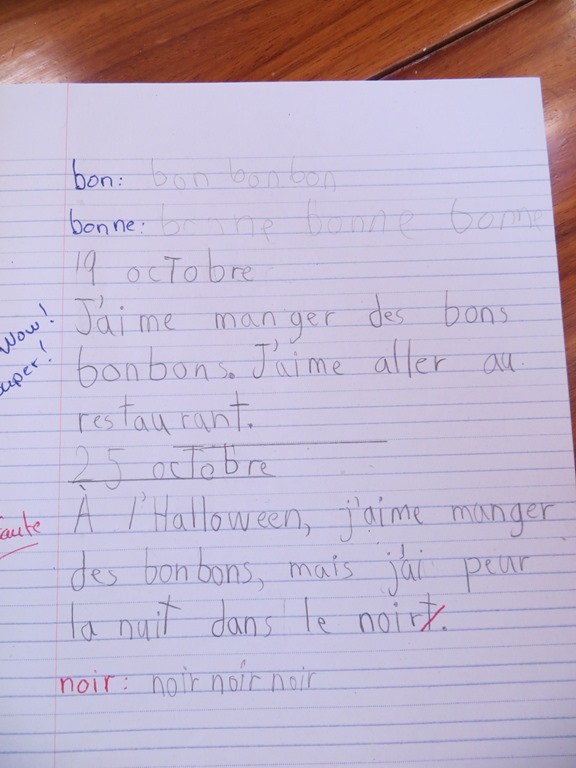 bon: bon bon bon
bonne: bonne bonne bonne
19 octobre
Wow!
J'aime manger des bons
bonbons. J'aime aller au
restaurant.
25 octobre
À l'Halloween, j'aime manger
des bonbons, mais j'ai peur
la nuit dans le noirt.
noir: noir noir noir